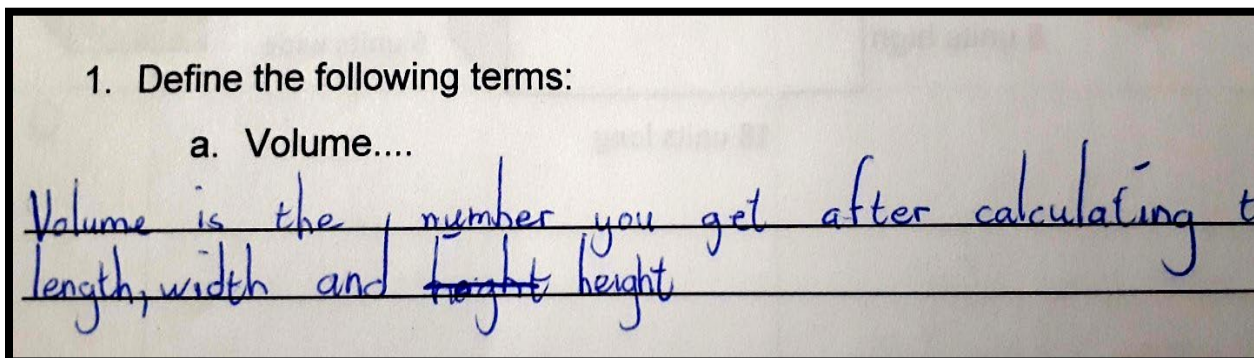 1. Define the following terms:
a. Volume....
Volume is the number you get after calculating t
length, width and height height